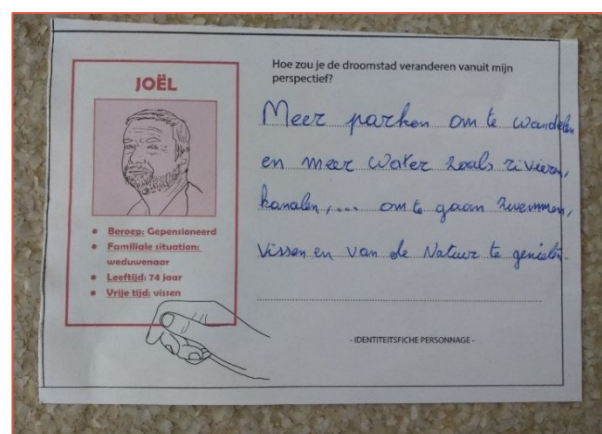 JOËL
• Beroep: Gepensioneerd
• Familiale situation:
weduwenaar
• Leeftijd: 74 jaar
• Vrije tijd: vissen
Hoe zou je de droomstad veranderen vanuit mijn
perspectief?
Meer parken om te wandelen
en meer water zoals rivieren,
kanalen,... om te gaan zwemmen,
vissen en van de Natuur te genieten.
- IDENTITEITSFICHE PERSONNAGE -